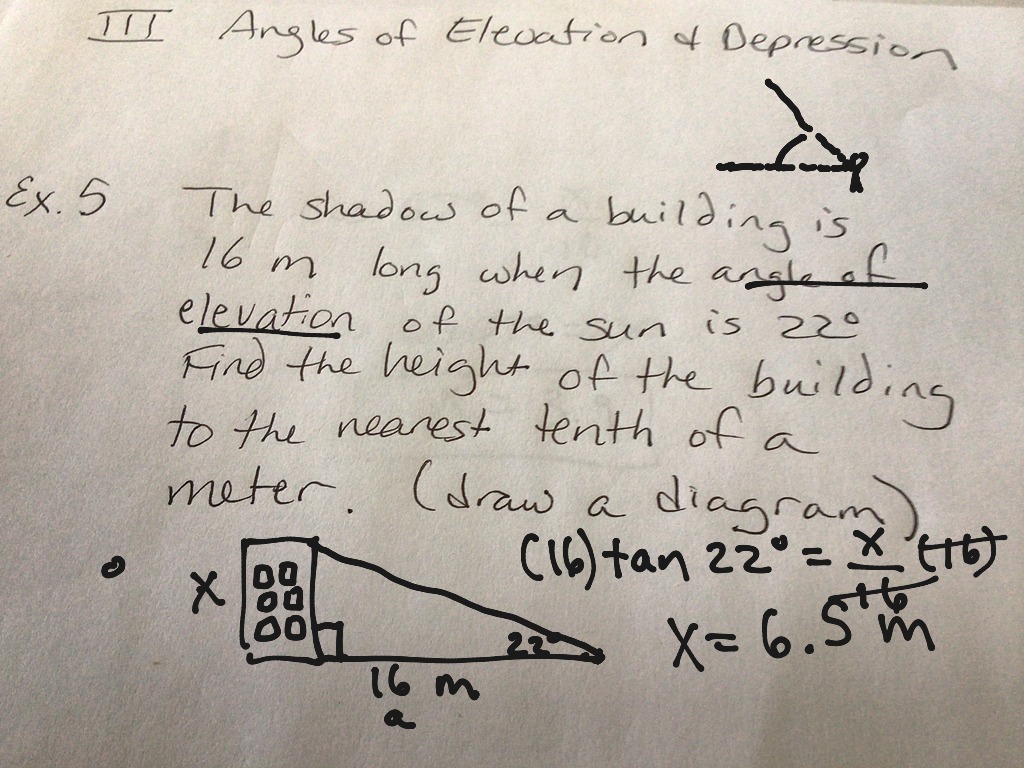 III Angles of Elevation & Depression
Ex. 5 The shadow of a building is
16 m long when the angle of
elevation of the sun is 22°
Find the height of the building
to the nearest tenth of a
meter. (draw a diagram)
(16) tan 22° = x/16 (16)
x = 6.5 m
x
22°
16 m
a